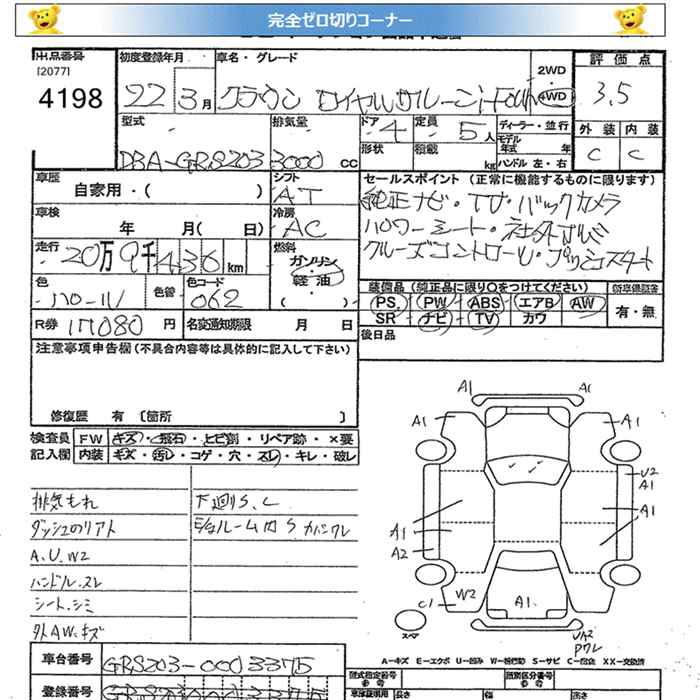 完全ゼロ切りコーナー
出品番号 初度登録年月 車名・グレード 評価点
[2077]
4198 22 3月 クラウン ロイヤルサルーン i-Four 2WD 4WD 3.5
型式 排気量 ドア 定員 ディーラー・並行 外装 内装
DBA-GRS203 3000 CC 4 5人 モデル年式 年 C C
形状 積載 kg ハンドル 左・右
車歴 シフト セールスポイント (正常に機能するものに限ります)
自家用・( ) AT 純正ナビ・TV・バックカメラ
車検 冷房 パワーシート・社外
年 月( 日) AC クルーズコントロール・プッシュスタート
走行 燃料
20万9千436km ガソリン・軽油 ( )
色 色替 色コード 装備品 (純正品に限り○をつけてください) 新車保証書
パール 062 PS PW ABS エアB AW 有・無
R券 17080円 名変通知期限 月 日 SR ナビ TV カワ
後日品
注意事項申告欄(不具合内容等は具体的に記入して下さい)
修復歴 有 [箇所 ]
検査員 FW キズ・飛石・ヒビ割・リペア跡・×要
記入欄 内装 キズ・汚レ・コゲ・穴・スレ・キレ・破レ
排気もれ 下廻りS、C
ダッシュのリアト ルーム内S カバーワレ
A.U.W2
ハンドル.スレ
シート.シミ
外AW.キズ
A1 A1
A1 A1
U2
A1
A1 A1
A2
W2 A1.
C1
スペア UA2
Pワレ
A-キズ E-エクボ U-凹み W-板打動 S-サビ C-腐食 XX-交換済
車台番号 GRS203-0003375
登録番号 型式指定番号 類別区分番号
車庫証明用 長さ 幅 高さ